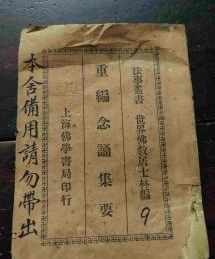 法事叢書　世界佛教居士林編
9
重編念誦集要
上海佛學書局印行
本舍備用請勿帶出